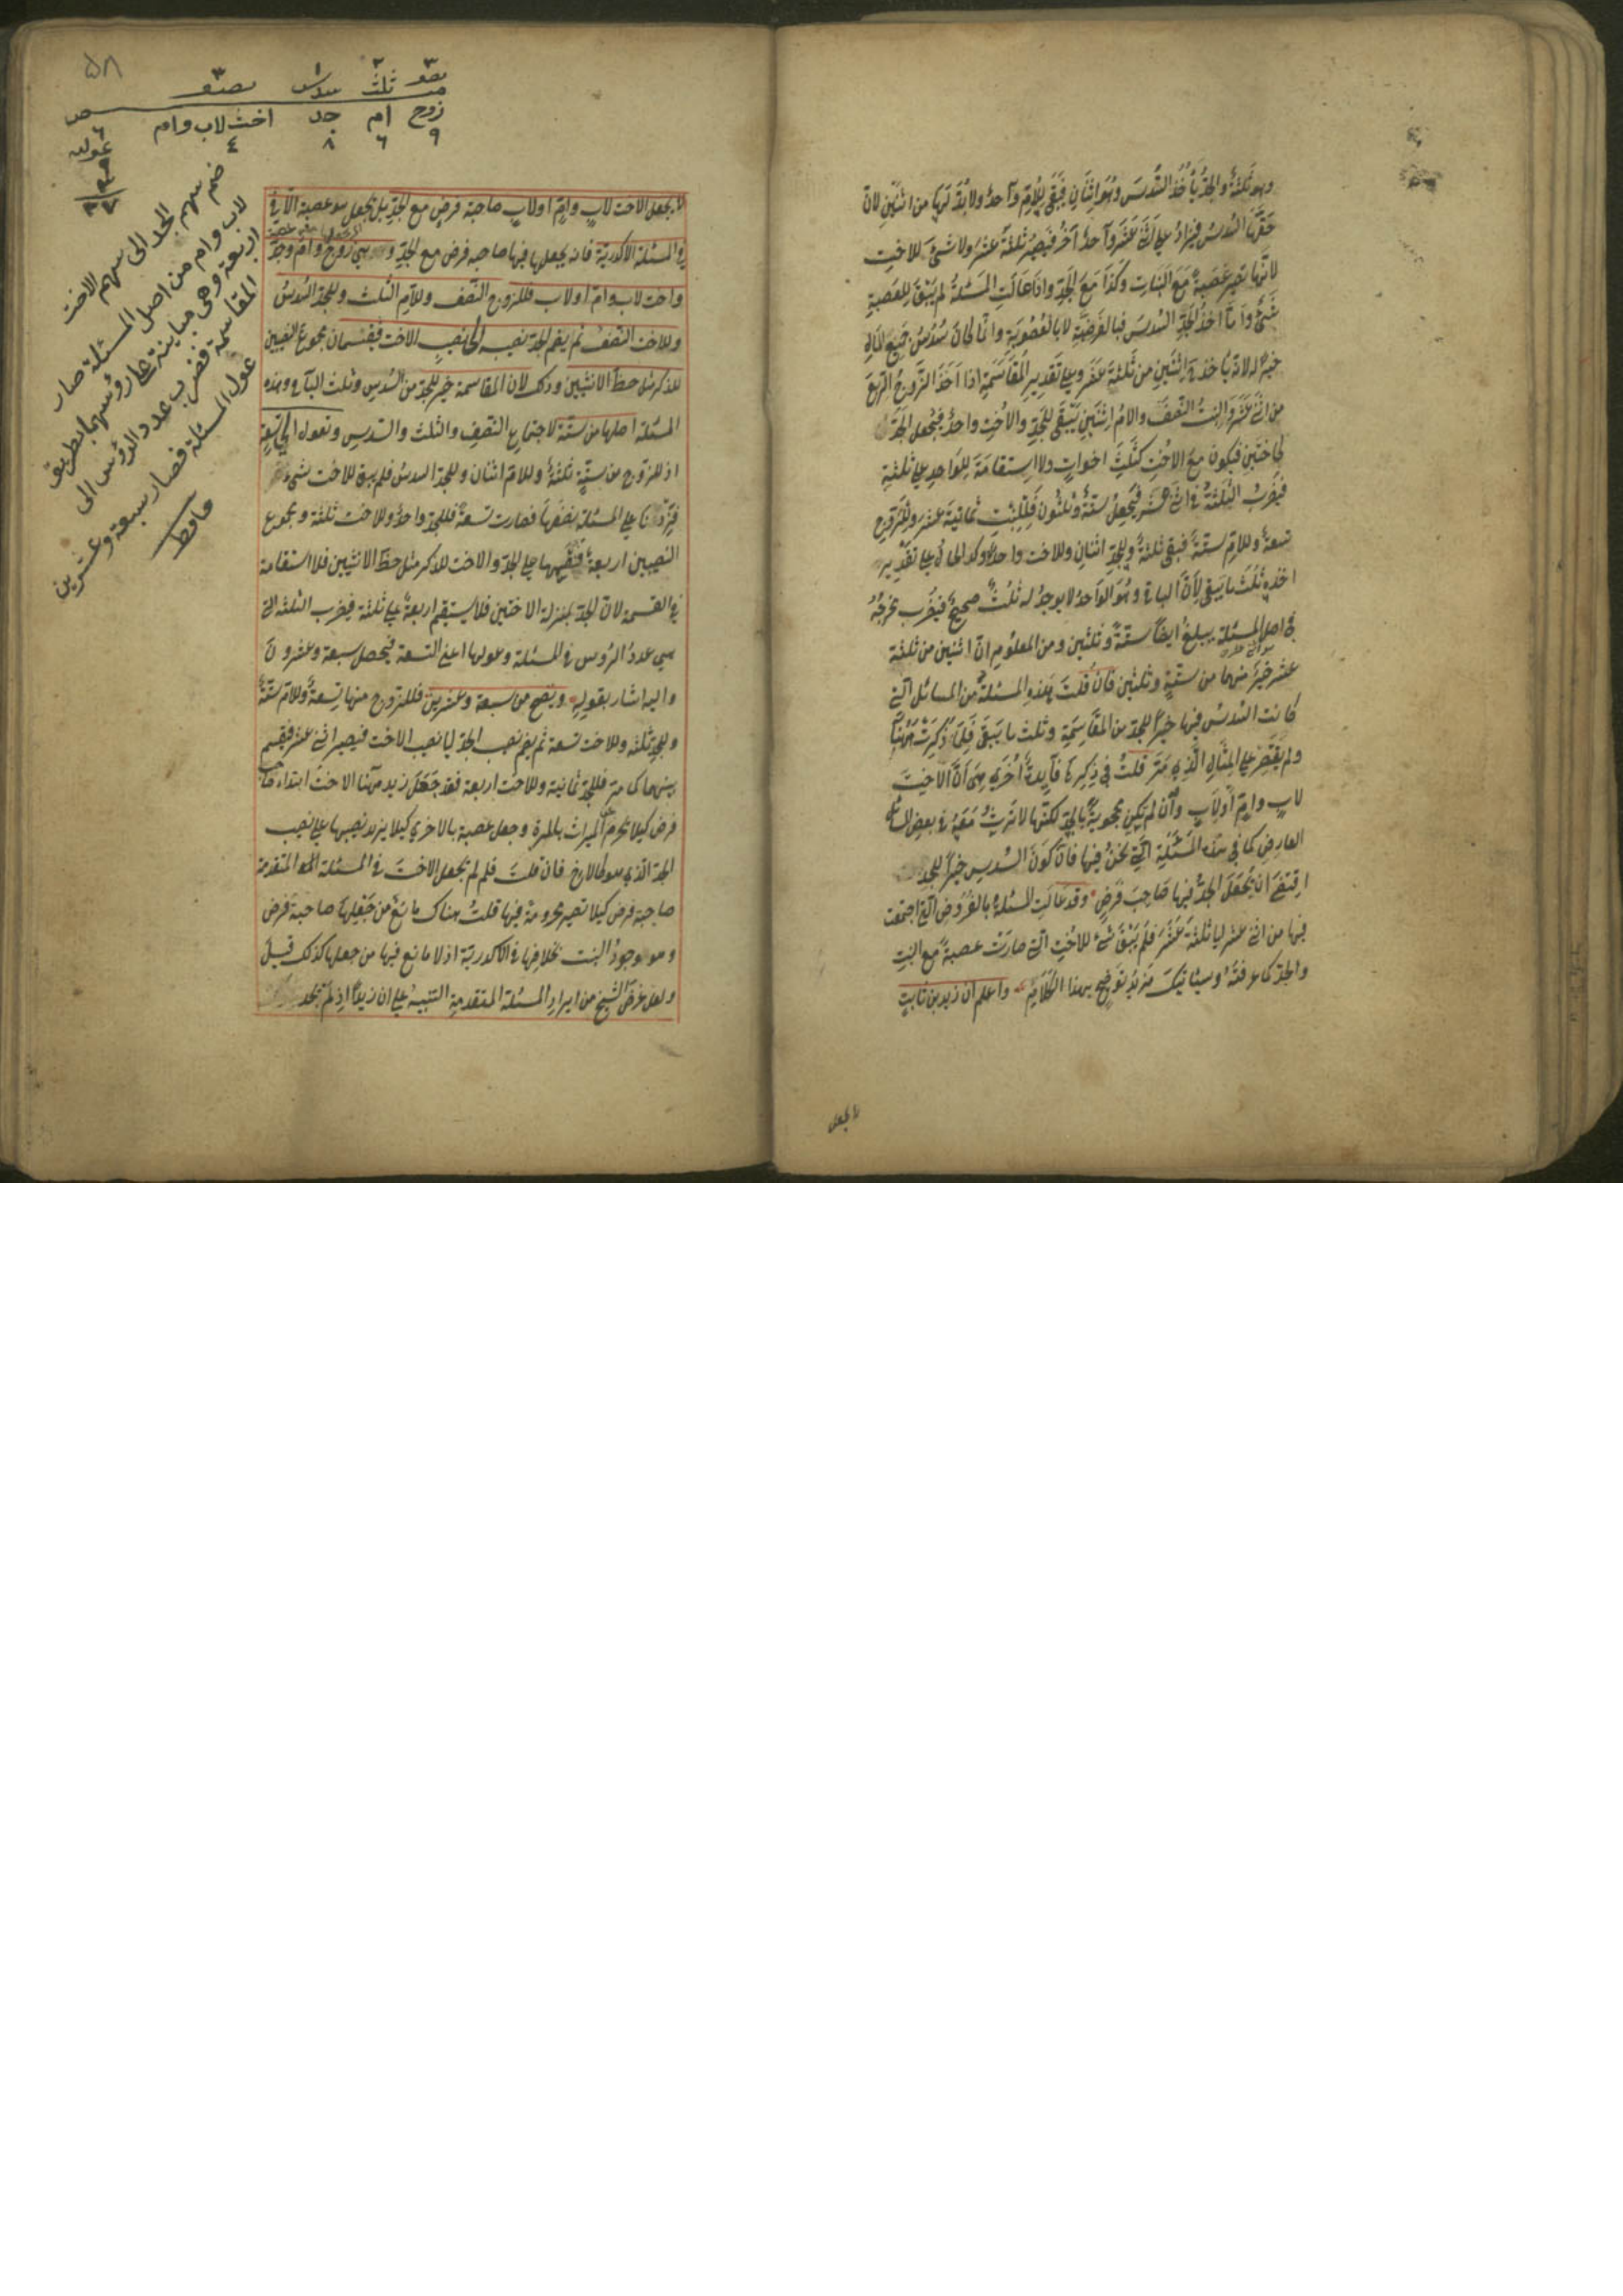 وهو ثلثة والجد يأخذ السدس وهو اثنان فبقي للام واحد ولا بد لها من اثنين لان
حقها السدس فيزاد على اثنى عشر واحد آخر فيصير ثلثة عشر ولا شئ للاخت
لانها تصير عصبة مع البنات وكذا مع الجد واذا عالت المسئلة لم يبق للعصبة
شئ واما اخذ الجد السدس فبالفرضية لا بالعصوبة وانما كان سدس جميع المال
خيرا له لانه يأخذ اثنين من ثلثة عشر وعلى تقدير المقاسمة اذا اخذ الزوج الربع
من اثنى عشر والبنت النصف والام اثنين يبقى للجد والاخت واحد فيجعل الجد
كاختين فيكون مع الاخت كثلث اخوات ولا استقامة للواحد على ثلثة
فيضرب الثلثة في اثنى عشر فيحصل ستة وثلثون فللبنت ثمانية عشر وللزوج
تسعة وللام ستة فبقي ثلثة وللجد اثنان وللاخت واحد وكذا الحال على تقدير
اخذه ثلث ما يبقى لان الباقي وهو الواحد لا يوجد له ثلث صحيح فيضرب مخرجه
في اصل المسئلة يبلغ ايضا ستة وثلثين ومن المعلوم ان اثنين من ثلثة
عشر خير منهما من ستة وثلثين فان قلت هذه المسئلة من المسائل التى
كانت السدس فيها خيرا للجد من المقاسمة وثلث ما يبقى فلم ذكرت ههنا
ولم يقتصر على المثال الذي مر قلت في ذكرها فايدة اخرى هي ان الاخت
لاب وام او لاب وان لم تكن محجوبة بالجد لكنها لا ترث معه في بعض المسائل
العارض كما في هذه المسئلة التى نحن فيها فان كون السدس خيرا للجد
اقتضى ان يجعل الجد فيها صاحب فرض وقد عالت المسئلة بالفروض التى اجتمعت
فيها من اثنى عشر الى ثلثة عشر فلم يبق شئ للاخت التى صارت عصبة مع البنت
والجد كما عرفته وسيأتيك مزيد توضيح بهذا الكلام واعلم ان زيد بن ثابت
لا يجعل
٥٨
٣ ٢ ١ ٣
نصف ثلث سدس نصف
زوج ام جد اخت لاب وام
٩ ٦ ٨ ٤
٦
عولها
٩
٢٧
ضم سهم الجد الى سهم الاخت
لاب وام من اصل المسئلة صار
اربعة وهى مباينة على رؤسهما بطريق
المقاسمة فضرب عدد الرؤس الى
عول المسئلة فصار سبعة وعشرين
حافظ
لا يجعل الاخت لاب وام او لاب صاحبة فرض مع الجد بل يجعل هو عصبة الا في
في المسئلة الاكدرية فانه يجعلها فيها صاحبة فرض مع الجد وهي زوج وام وجد
واخت لاب وام او لاب فللزوج النصف وللام الثلث وللجد السدس
وللاخت النصف ثم يضم الجد نصيبه الى نصيب الاخت فيقتسمان مجموع النصيبين
للذكر مثل حظ الانثيين وذلك لان المقاسمة خير للجد من السدس وثلث الباقي وهذه
المسئلة اصلها من ستة لاجتماع النصف والثلث والسدس وتعول الى تسعة
اذ للزوج من ستة ثلثة وللام اثنان وللجد السدس فلم يبق للاخت شئ
فزدنا على المسئلة نصفها فصارت تسعة فللجد واحد وللاخت ثلثة ومجموع
النصيبين اربعة فنقسمها على الجد والاخت للذكر مثل حظ الانثيين فلا استقامة
في القسمة لان الجد بمنزلة الاختين فلا يستقيم اربعة على ثلثة فيضرب الثلثة التى
هي عدد الرؤس في المسئلة وعولها اعنى التسعة فيحصل سبعة وعشرون
واليه اشار بقوله وتصح من سبعة وعشرين فللزوج منها تسعة وللام ستة
وللجد ثلثة وللاخت تسعة ثم يضم نصيب الجد الى نصيب الاخت فيصير اثنى عشر فيقسم
بينهما كما مر فللجد ثمانية وللاخت اربعة فقد جعل زيد ههنا الاخت ابتداء صاحبة
فرض كيلا يحرم عن الميراث بالمرة وجعل عصبة بالاخرى كيلا يزيد نصيبها على نصيب
الجد الذي هو كالاخ فان قلت فلم لم يجعل الاخت في المسئلة المتقدمة
صاحبة فرض كيلا تصير محرومة فيها قلت هناك مانع من جعلها صاحبة فرض
وهو وجود البنت بخلافها في الاكدرية اذ لا مانع فيها من جعلها كذلك قيل
ولعل غرض الشيخ من ايراد المسئلة المتقدمة التنبيه على ان زيدا اذ لم يجد